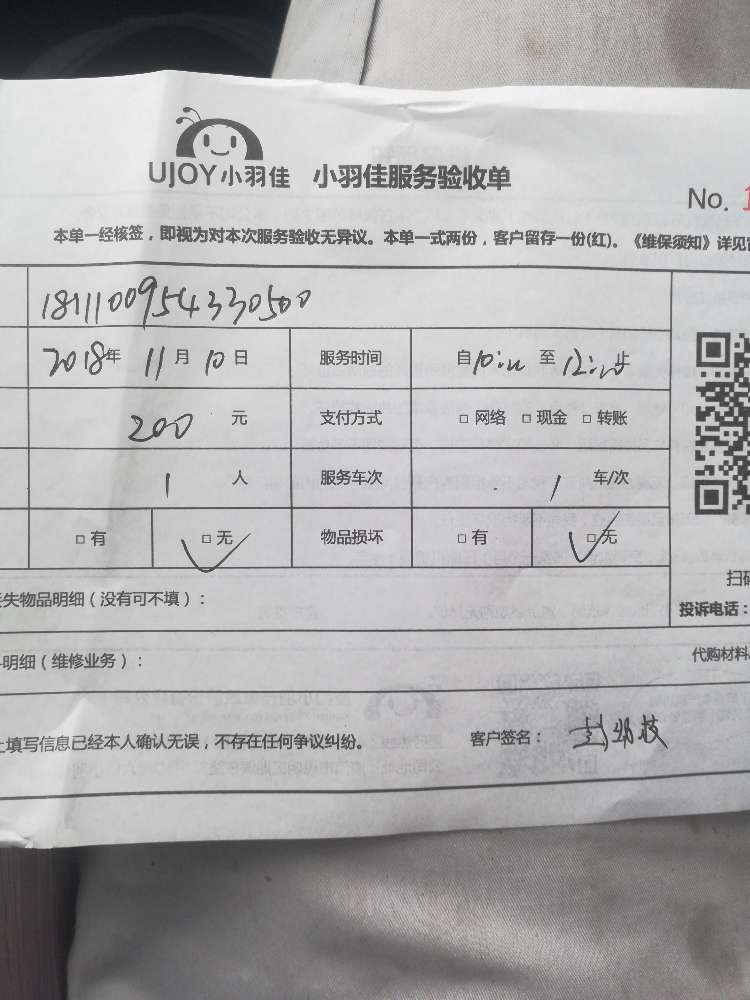 UJOY小羽佳 小羽佳服务验收单
No.
本单一经核签，即视为对本次服务验收无异议。本单一式两份，客户留存一份(红)。《维保须知》详见
181110095433050​0
2018年 11月 10日 服务时间 自10: 至12: 止
200 元 支付方式 □ 网络 □ 现金 □ 转账
1 人 服务车次 1 车/次
□ 有 □ 无 物品损坏 □ 有 □ 无
扫码
失物品明细（没有可不填）：
投诉电话：
明细（维修业务）：
代购材料
上填写信息已经本人确认无误，不存在任何争议纠纷。 客户签名：